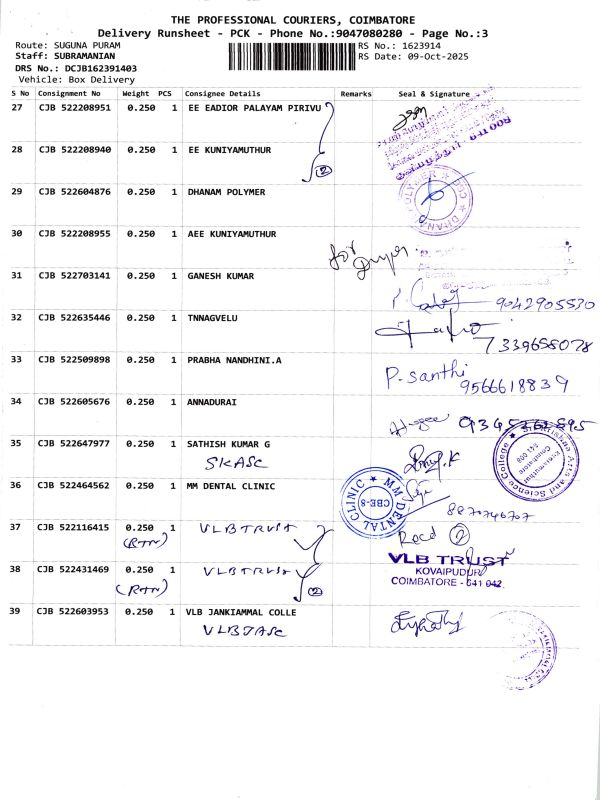 THE PROFESSIONAL COURIERS, COIMBATORE
Delivery Runsheet - PCK - Phone No.:9047080280 - Page No.:3
Route: SUGUNA PURAM
RS No.: 1623914
Staff: SUBRAMANIAN
RS Date: 09-Oct-2025
DRS No.: DCJB162391403
Vehicle: Box Delivery
S No Consignment No Weight PCS Consignee Details Remarks Seal & Signature
27 CJB 522208951 0.250 1 EE EADIOR PALAYAM PIRIVU
28 CJB 522208940 0.250 1 EE KUNIYAMUTHUR
2
29 CJB 522604876 0.250 1 DHANAM POLYMER
30 CJB 522208955 0.250 1 AEE KUNIYAMUTHUR
for
31 CJB 522703141 0.250 1 GANESH KUMAR
9042905530
32 CJB 522635446 0.250 1 TNNAGVELU
7339658078
33 CJB 522509898 0.250 1 PRABHA NANDHINI.A
P. Santhi
9566618839
34 CJB 522605676 0.250 1 ANNADURAI
35 CJB 522647977 0.250 1 SATHISH KUMAR G
SKASC
Sri Krishna Arts and Science College
Kuniamuthur
Coimbatore
641 008
36 CJB 522464562 0.250 1 MM DENTAL CLINIC
MM DENTAL CLINIC
CBE-8
8870746707
37 CJB 522116415 0.250 1 VLB TRUST
(RTN)
Recd 2
VLB TRUST
KOVAIPUDUR
COIMBATORE - 641 042.
38 CJB 522431469 0.250 1 VLB TRUST
(RTN)
2
39 CJB 522603953 0.250 1 VLB JANKIAMMAL COLLE
VLBJASC